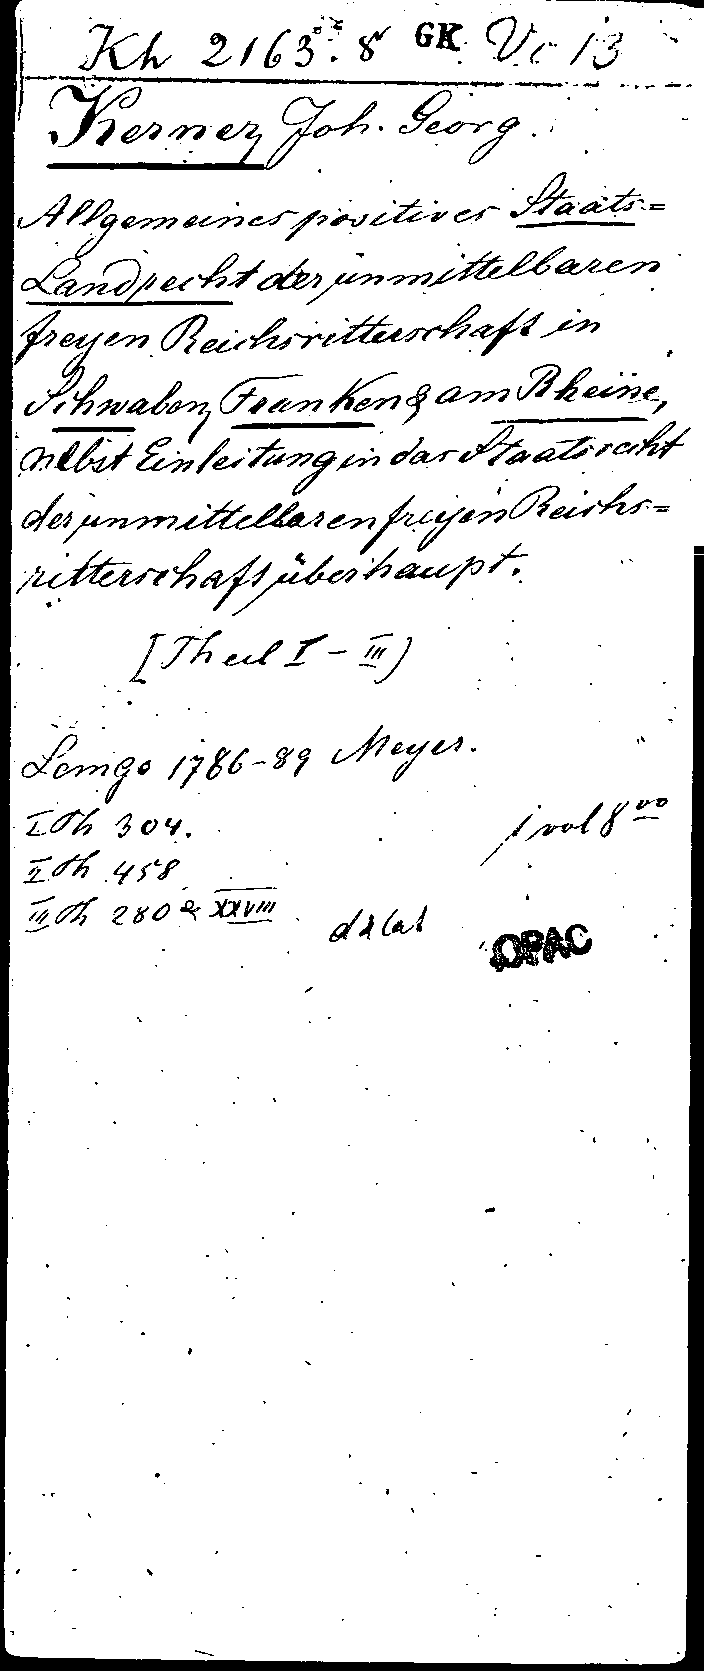 Kh 2163.8 GK Vc 13
Kerner, Joh. Georg.
Allgemeines positives Staats=
Landrecht der unmittelbaren
freyen Reichsritterschaft in
Schwaben, Franken & am Rheine,
nebst Einleitung in das Staatsrecht
der unmittelbaren freyen Reichs=
ritterschaft überhaupt.
[Theil I - III)
Lemgo 1786-89 Meyer.
I Th 304. 1 vol 8vo
II Th 458
III Th 280 & XXVIII
OPAC